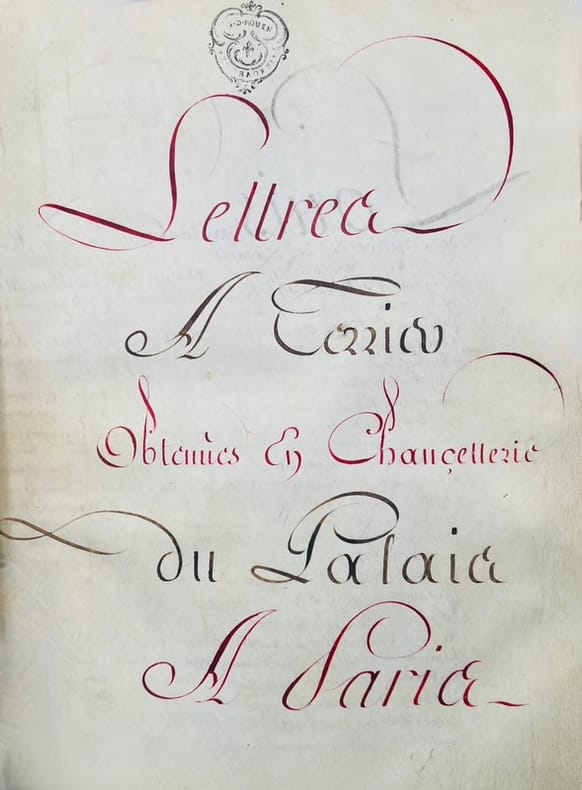 Lettres
A Terrier
Obtenües En Chançellerie
du Palais
A Paris